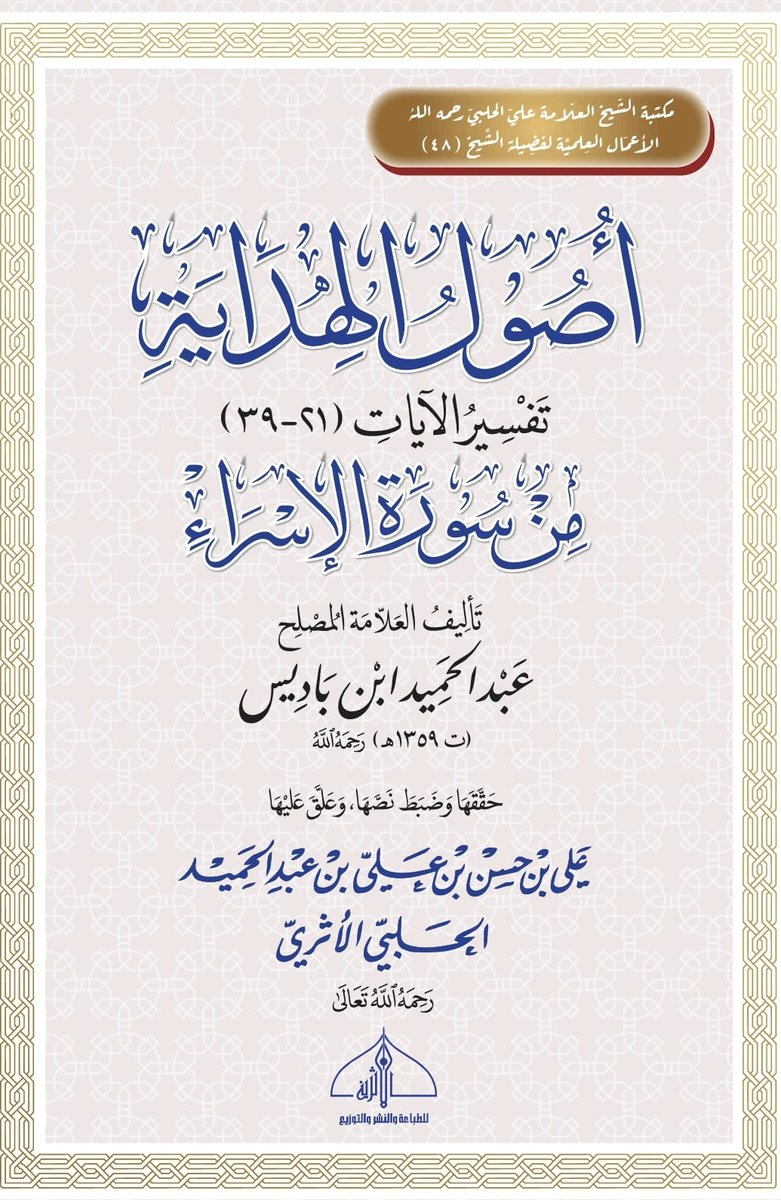 مكتبة الشيخ العلّامة عليّ الحلبيّ رحمه الله
الأعمال العِلميّة لفضيلة الشّيخ (٤٨)
أُصُولُ الهِدَايَةِ
تَفْسِيرُ الآيَاتِ (٢١-٣٩)
مِنْ سُورَةِ الإِسْرَاءِ
تَأْلِيفُ العَلّامَة المُصْلِح
عَبْد الحَمِيد ابْن بَادِيس
(ت ١٣٥٩هـ) رَحِمَهُ ٱللَّهُ
حَقَّقَهَا وَضَبَطَ نَصَّهَا، وَعَلَّقَ عَلَيْهَا
عَلِي بْنُ حَسَنِ بْنِ عَلِيِّ بْنِ عَبْدِ الحَمِيد
الحَلَبِيّ الأَثَرِيّ
رَحِمَهُ ٱللَّهُ تَعَالَىٰ
الأثرية
للطباعة والنشر والتوزيع